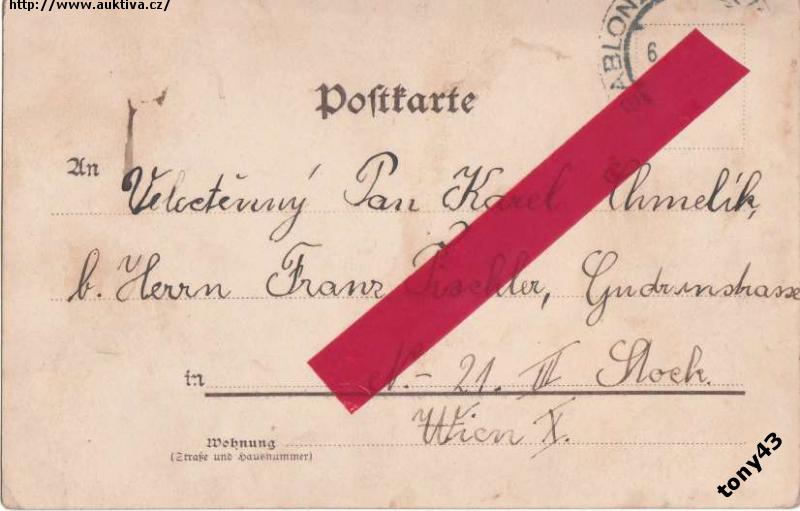 http://www.auktiva.cz/
ABLON
6
Postkarte
An Velectěnný Pan Karel Chmelík,
b. Herrn Franz Tischler, Gudrunstrasse
in N.- 21. II Stock.
Wien X.
Wohnung
(Straße und Hausnummer)
tony43